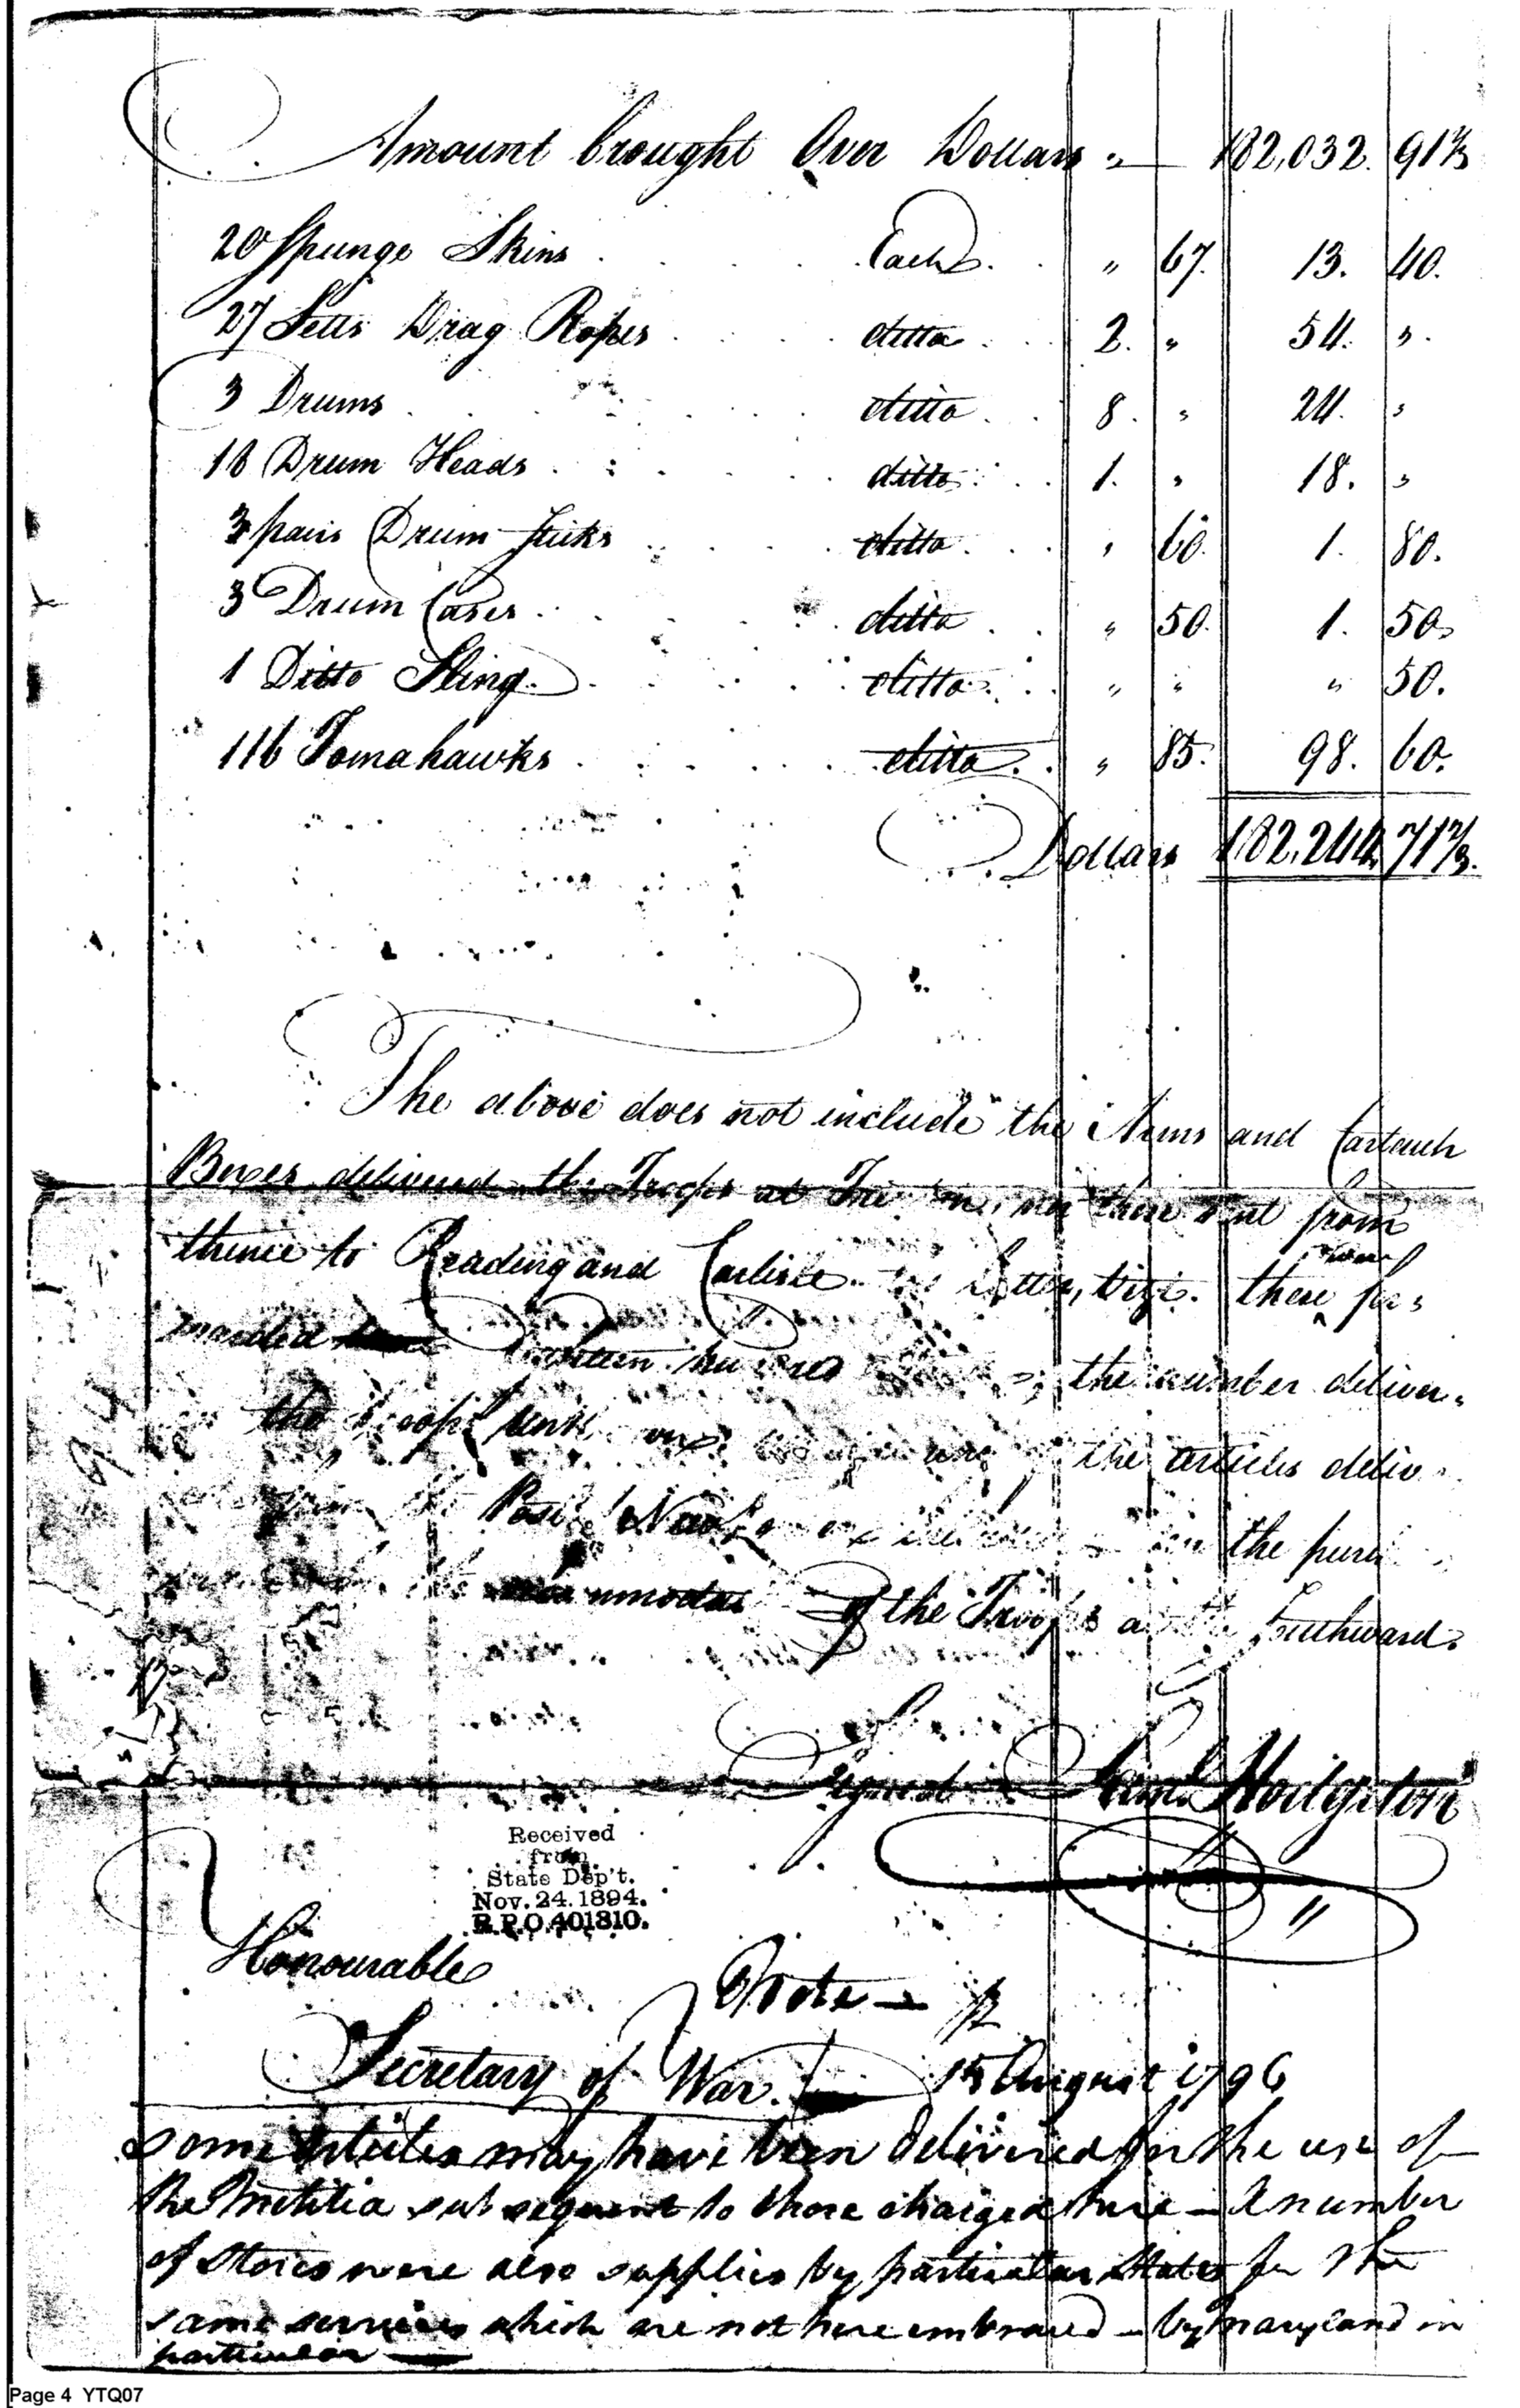 Amount brought Over Dollars " 182,032. 91⅔
20 Spunge Skins . . . . Each . . " 67. 13. 40.
27 Setts Drag Ropes . . . . ditto . . 2. " 54. "
3 Drums . . . . ditto . . 8. " 24. "
18 Drum Heads . . . . ditto . . 1. " 18. "
3 pairs Drum Sticks . . . . ditto . . " 60. 1. 80.
3 Drum Cases . . . . ditto . . " 50. 1. 50.
1 Ditto Sling . . . . ditto . . " " " 50.
116 Tomahawks . . . . ditto . . " 85. 98. 60.
Dollars 182,244. 71⅔.
The above does not include the Arms and Cartouch
Boxes delivered the Troops at nor those sent from
thence to Reading and Carlisle. Vizt. these for=
warded hundred the number deliver=
the Troops the articles deliv
Post the
of the Troops Southward.
Signed Saml. Hodgdon
Received
from
State Dep't.
Nov. 24. 1894.
R.P.O. 401810.
Honourable
Note —
Secretary of War. 15 August 1796
some articles may have been delivered for the use of
the Militia subsequent to those charged here — A number
of Stores were also supplied by particular States for the
same services which are not here embraced — by Maryland in
particular —
Page 4 YTQ07